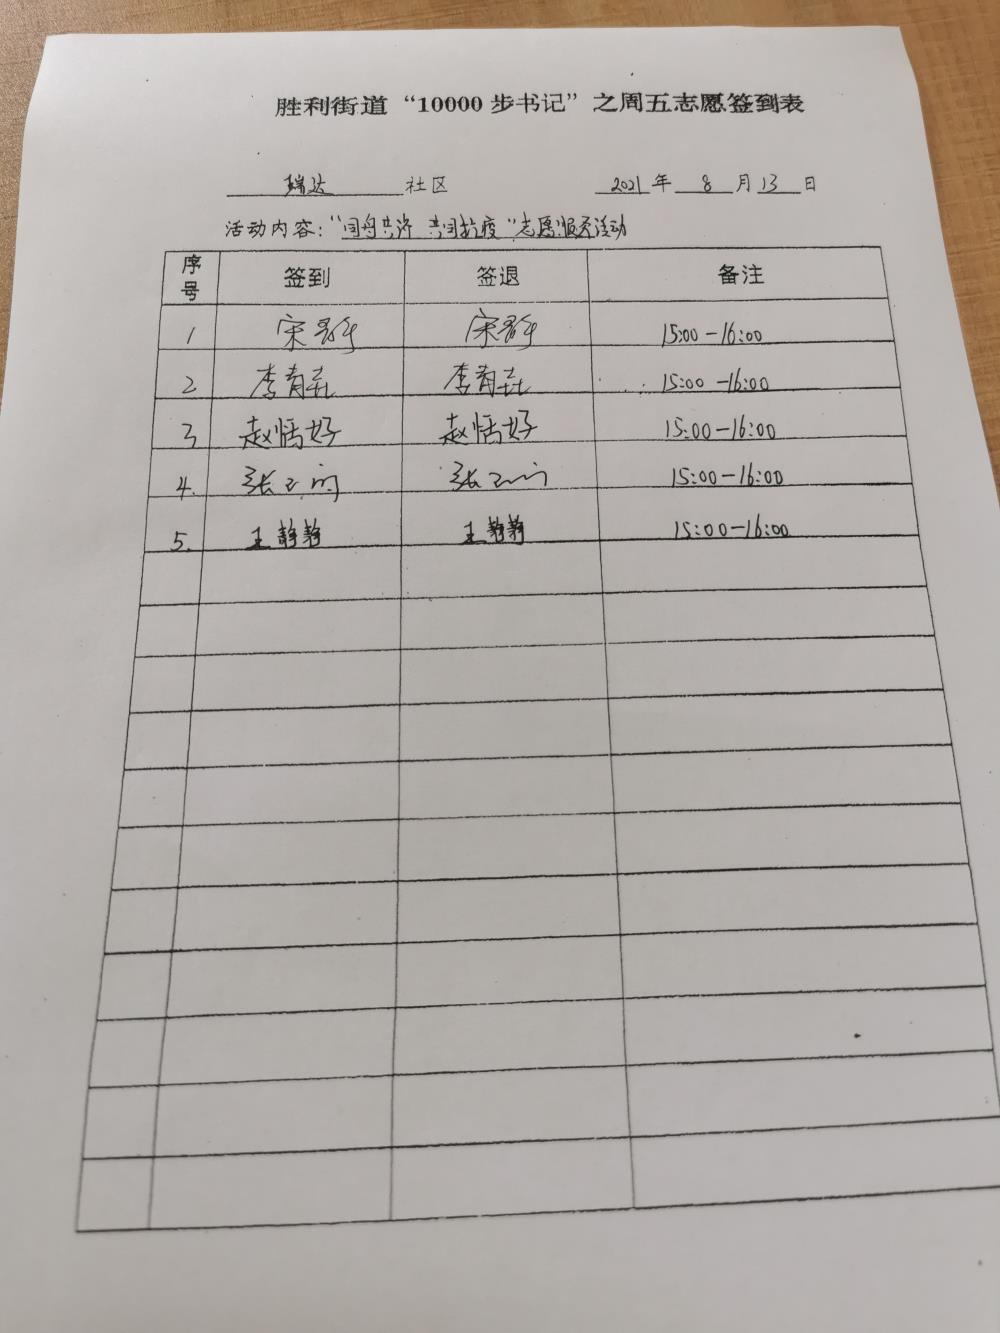 胜利街道“10000步书记”之周五志愿签到表
瑞达 社区 2021 年 8 月 13 日
活动内容：“同舟共济 共同抗疫”志愿服务活动
序号 签到 签退 备注
1 宋 宋 15:00-16:00
2 李青 李青 15:00-16:00
3 赵恬好 赵恬好 15:00-16:00
4. 张 张 15:00-16:00
5. 王静静 王静静 15:00-16:00